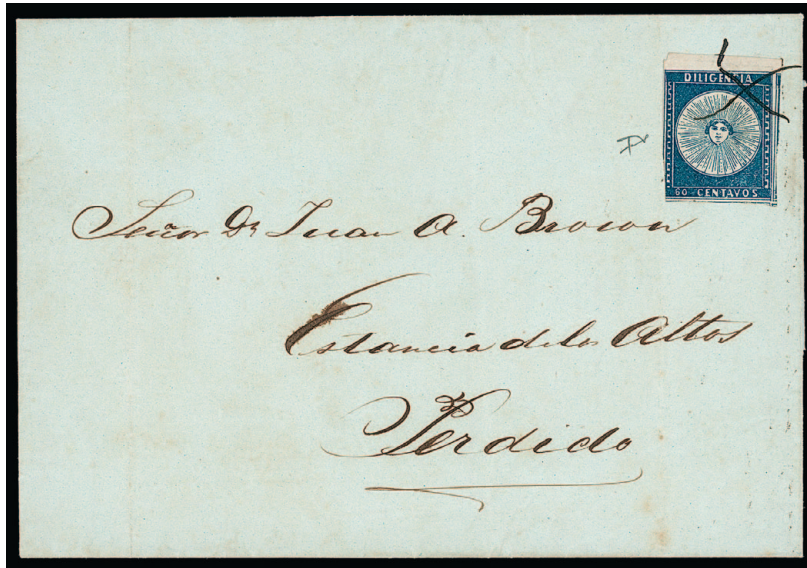 DILIGENCIA
60 - CENTAVOS
Señor Dn Juan A. Brown
Estancia de los Altos
Perdido